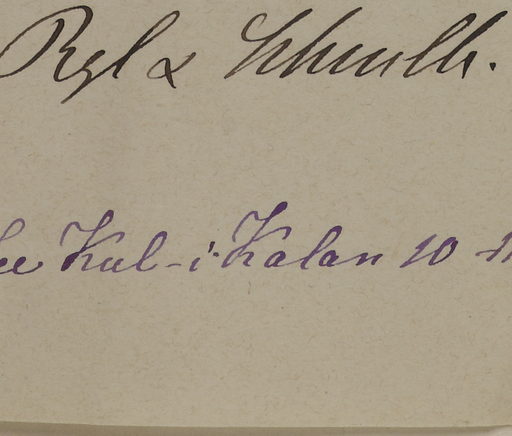 Rgl & Schmalh.
Kul-i-Kalan 10-